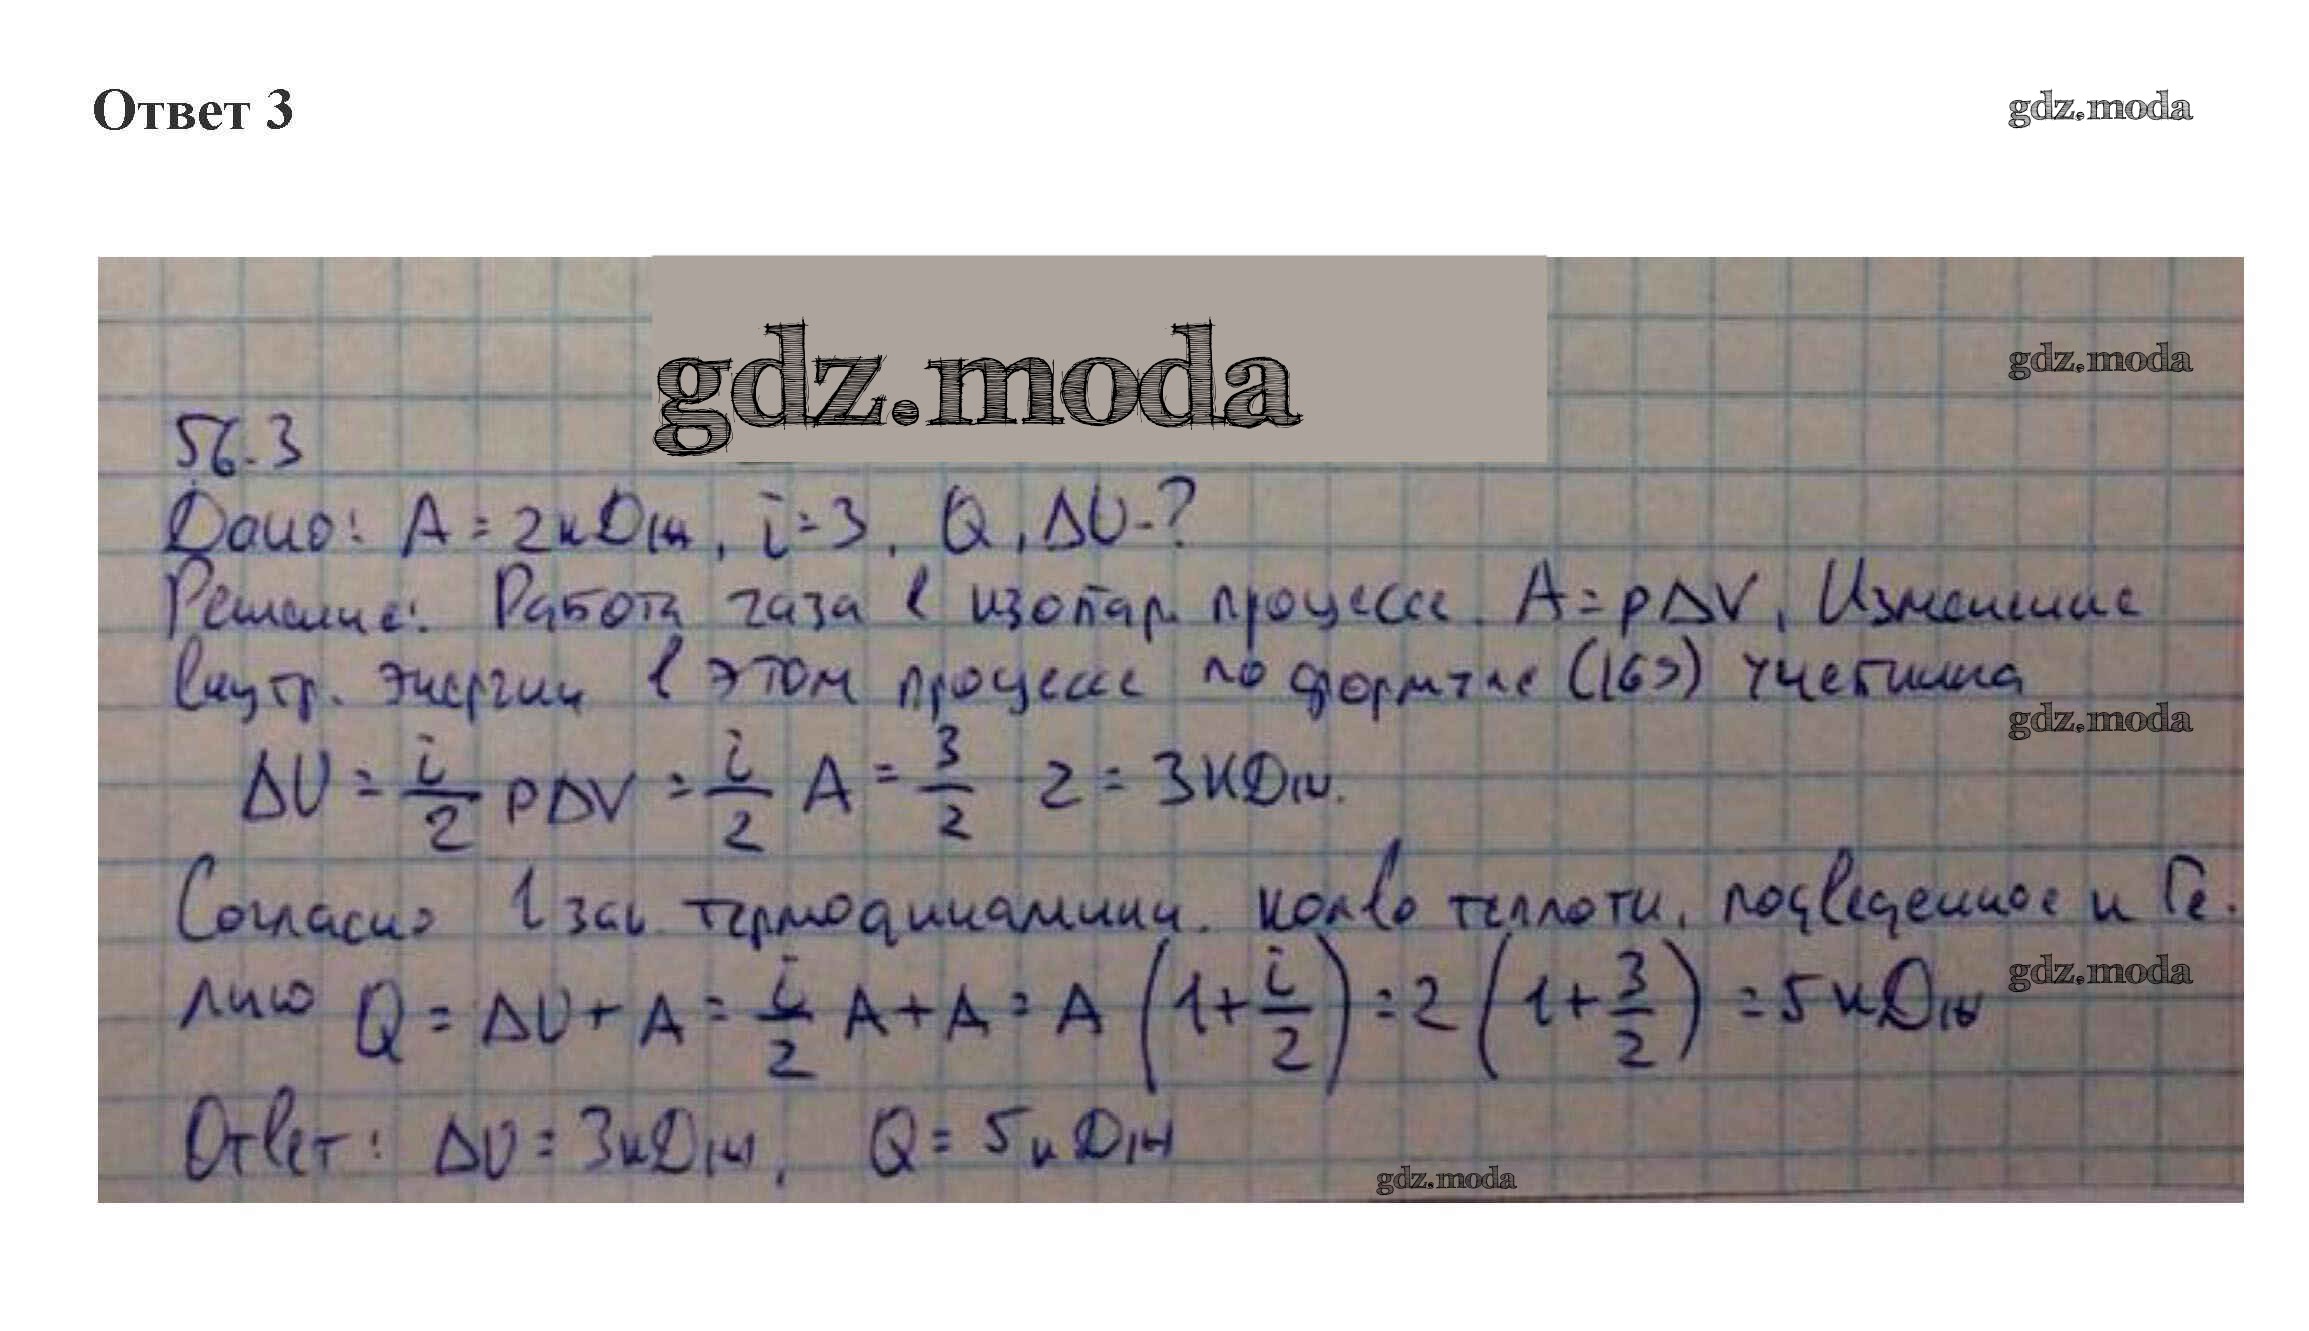 Ответ 3
gdz.moda
gdz.moda
gdz.moda
56.3
Дано: A = 2кДж, i=3, Q, ΔU-?
Решение: Работа газа в изобар. процессе A=pΔV, Изменение
внутр. энергии в этом процессе по формуле (163) учебника
gdz.moda
ΔU = i/2 pΔV = i/2 A = 3/2 2 = 3кДж.
Согласно 1 зак. термодинамики. кол-во теплоты, подведенное к Ге-
лию Q = ΔU + A = i/2 A + A = A (1 + i/2) = 2 (1 + 3/2) = 5 кДж
gdz.moda
Ответ: ΔU = 3кДж, Q = 5кДж
gdz.moda